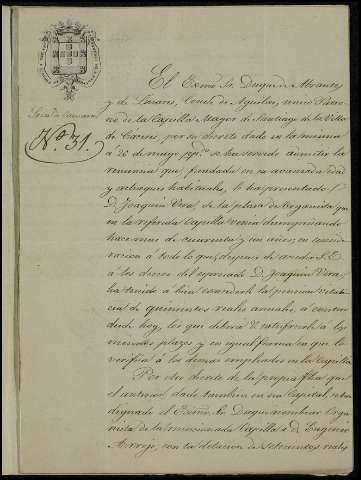 El Exmo. Sr. Duque de Abrantes
y de Linares, Conde de Aguilar, unico Patro-
no de la Capilla Mayor de Santiago de la Villa
de Cáceres, por su decreto dado en la misma
á 26 de mayo ppdo. se ha servido admitir la
renuncia que, fundada en su avanzada edad
y achaques habituales, le ha presentado
D. Joaquin Vera de la plaza de Organista que
en la referida Capilla venia desempeñando
hace mas de cuarenta y un años; en conside-
racion á todo lo que, deseoso de acceder S.E.
á los deseos del espresado D. Joaquin Vera,
ha tenido á bien concederle la pension vitali-
cia de quinientos reales anuales, á contar
desde hoy, los que deberá V. satisfacerle á los
mismos plazos y en igual forma en que lo
verifica á los demas empleados en la Capilla.
Por otro decreto de la propia fha. que
el anterior, dado tambien en esa Capital, se ha
dignado el Exmo. Sr. Duque nombrar Orga-
nista de la mencionada Capilla á D. Eugenio
Arroyo, con la dotacion de setecientos reales
No. 31.